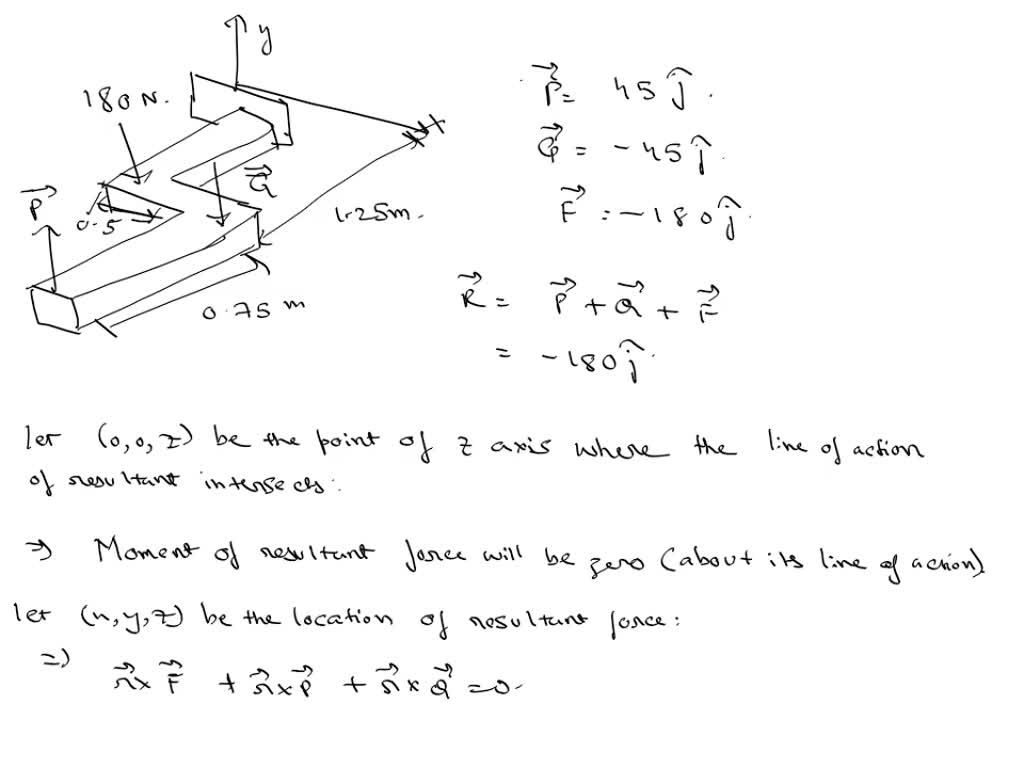 y
180 N.
P⃗ = 45 ĵ.
Q⃗ = -45 ĵ.
P⃗
Q⃗
0.5
1.25m.
F⃗ : -180 ĵ.
0.75 m
R⃗ = P⃗ + Q⃗ + F⃗
= -180 ĵ.
let (0,0,z) be the point of z axis where the line of action
of resultant intersects:
⇒ Moment of resultant force will be zero (about its line of action)
let (x,y,z) be the location of resultant force:
⇒) r⃗ x F⃗ + r⃗ x P⃗ + r⃗ x Q⃗ = 0.